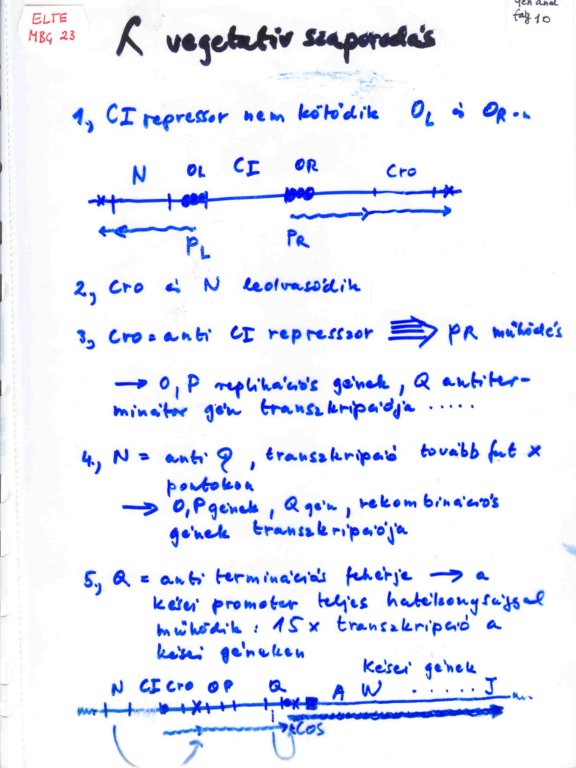 ELTE
MBG 23
fág 10
λ vegetatív szaporodás
1., CI repressor nem kötődik OL és OR-n
N OL CI OR Cro
PL PR
2., Cro és N leolvasódik
3., Cro = anti CI repressor ⇛ pR működés
→ O, P replikációs gének, Q antiter-
minátor gén transzkripciója .....
4., N = anti ϱ, transzkripció tovább fut x
pontokon
→ O, P gének, Q gén, rekombinációs
gének transzkripciója
5., Q = anti terminációs fehérje → a
kései promoter teljes hatékonysággal
működik: 15x transzkripció a
kései géneken
Kései gének
N CI Cro O P Q A W ...... J
cos